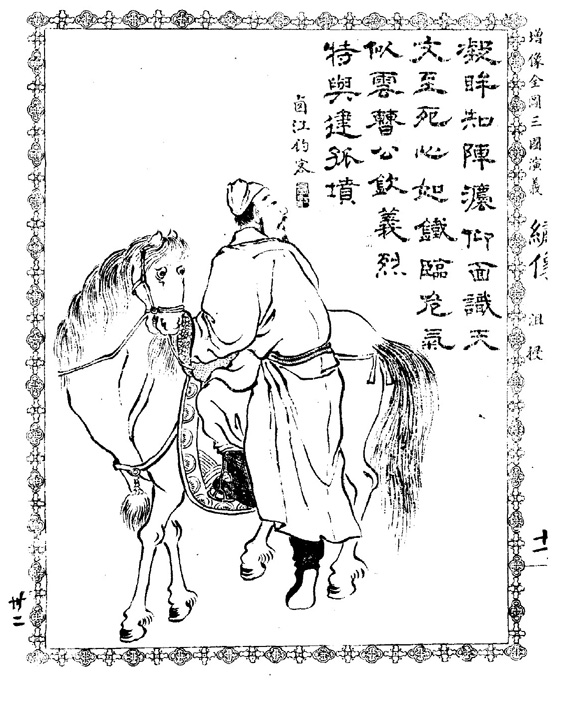 增像全圖三國演義
繡像
沮授
十一
凝眸知陣灋仰面識天
文至死心如鐵臨危氣
似雲曹公欽義烈
特與建孤墳
江釣客
卄二